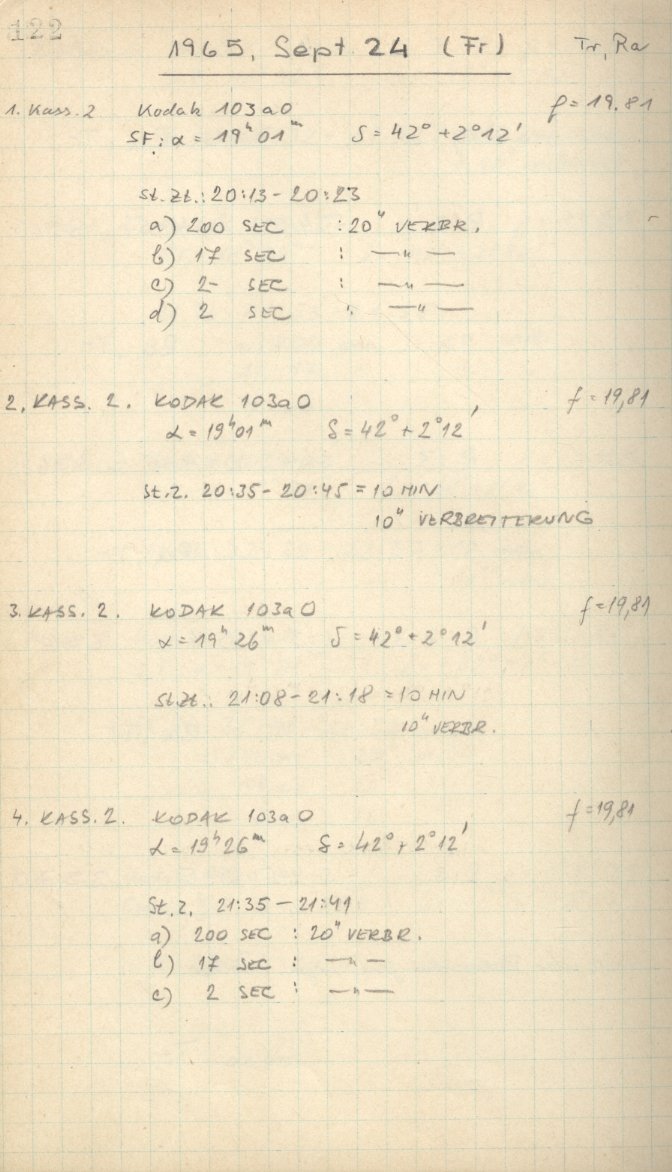 122
1965, Sept 24 (Fr) Tr, Ra
1. Kass. 2 Kodak 103aO f = 19.81
SF: α = 19ʰ 01ᵐ δ = 42° + 2°12'
St. Zt.: 20:13 - 20:23
a) 200 SEC : 20" VERBR.
b) 17 SEC : —"—
c) 2- SEC : —"—
d) 2 SEC " —"—
2. KASS. 2. KODAK 103aO f = 19,81
α = 19ʰ01ᵐ δ = 42° + 2°12'
St. Z. 20:35 - 20:45 = 10 MIN
10" VERBREITERUNG
3. KASS. 2. KODAK 103aO f = 19,81
α = 19ʰ 26ᵐ δ = 42° + 2°12'
St. Zt.: 21:08 - 21:18 = 10 MIN
10" VERBR.
4. KASS. 2. KODAK 103aO f = 19,81
α = 19ʰ26ᵐ δ = 42° + 2°12'
St. Z. 21:35 - 21:41
a) 200 SEC : 20" VERBR.
b) 17 SEC : —"—
c) 2 SEC : —"—